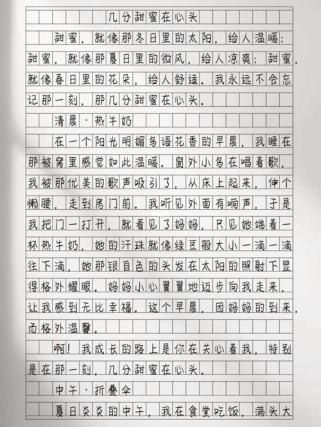 几分甜蜜在心头
甜蜜，就像那冬日里的太阳，给人温暖；
甜蜜，就像那夏日里的微风，给人凉爽；甜蜜，
就像春日里的花朵，给人舒适。我永远不会忘
记那一刻，那几分甜蜜在心头。
清晨·热牛奶
在一个阳光明媚鸟语花香的早晨，我睡在
那被窝里感觉如此温暖。窗外小鸟在唱着歌，
我被那优美的歌声吸引了，从床上起来，伸个
懒腰，走到房门前。我听见外面有响声，于是
我把门一打开，就看见了妈妈，只见她端着一
杯热牛奶，她的汗珠就像绿豆般大小一滴一滴
往下滴，她那银白色的头发在太阳的照射下显
得格外耀眼。妈妈小心翼翼地迈步向我走来，
让我感到无比幸福。这个早晨，因妈妈的到来，
而格外温馨。
啊！我成长的路上是你在关心着我，特别
是在那一刻，几分甜蜜在心头。
中午·折叠伞
夏日炎炎的中午，我在食堂吃饭，满头大